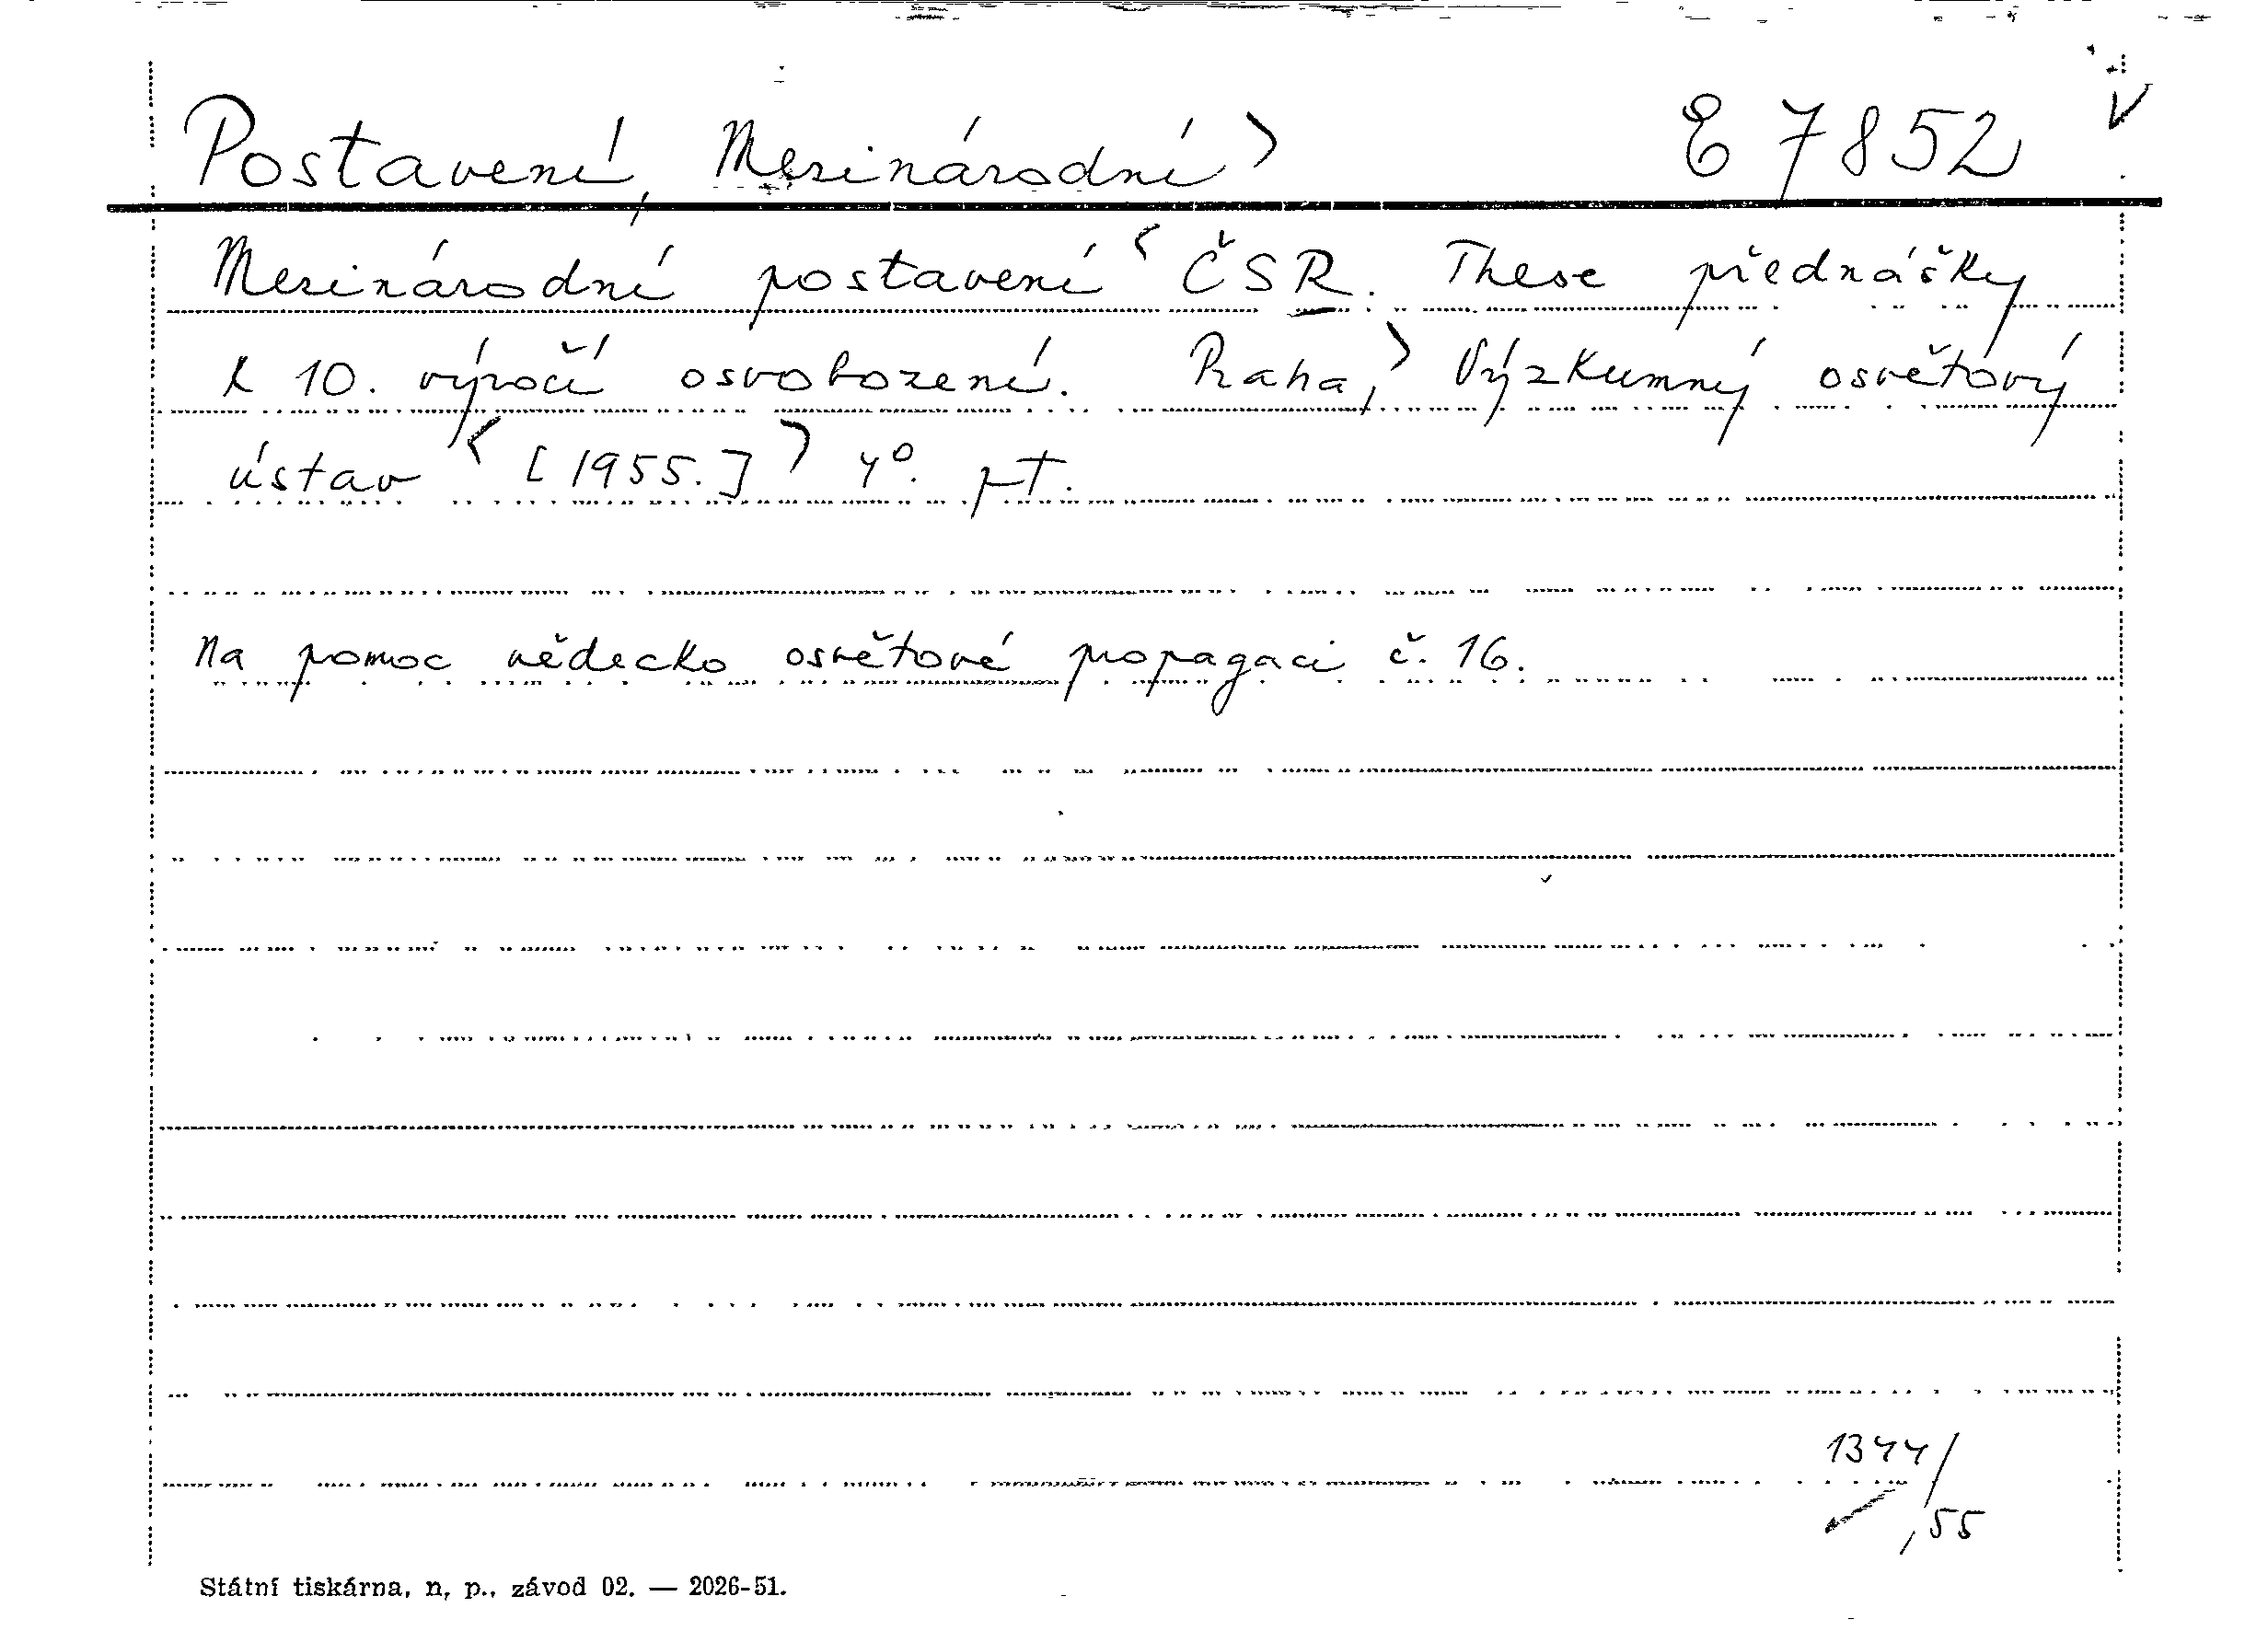 Postavení, Mezinárodní > E 7852 V
Mezinárodní postavení < ČSR. These přednášky
k 10. výročí osvobození. Praha, > Výzkumný osvětový
ústav < [1955.] > 4°. pt.
Na pomoc vědecko osvětové propagaci č. 16.
1344/
55
Státní tiskárna, n, p., závod 02. — 2026-51.